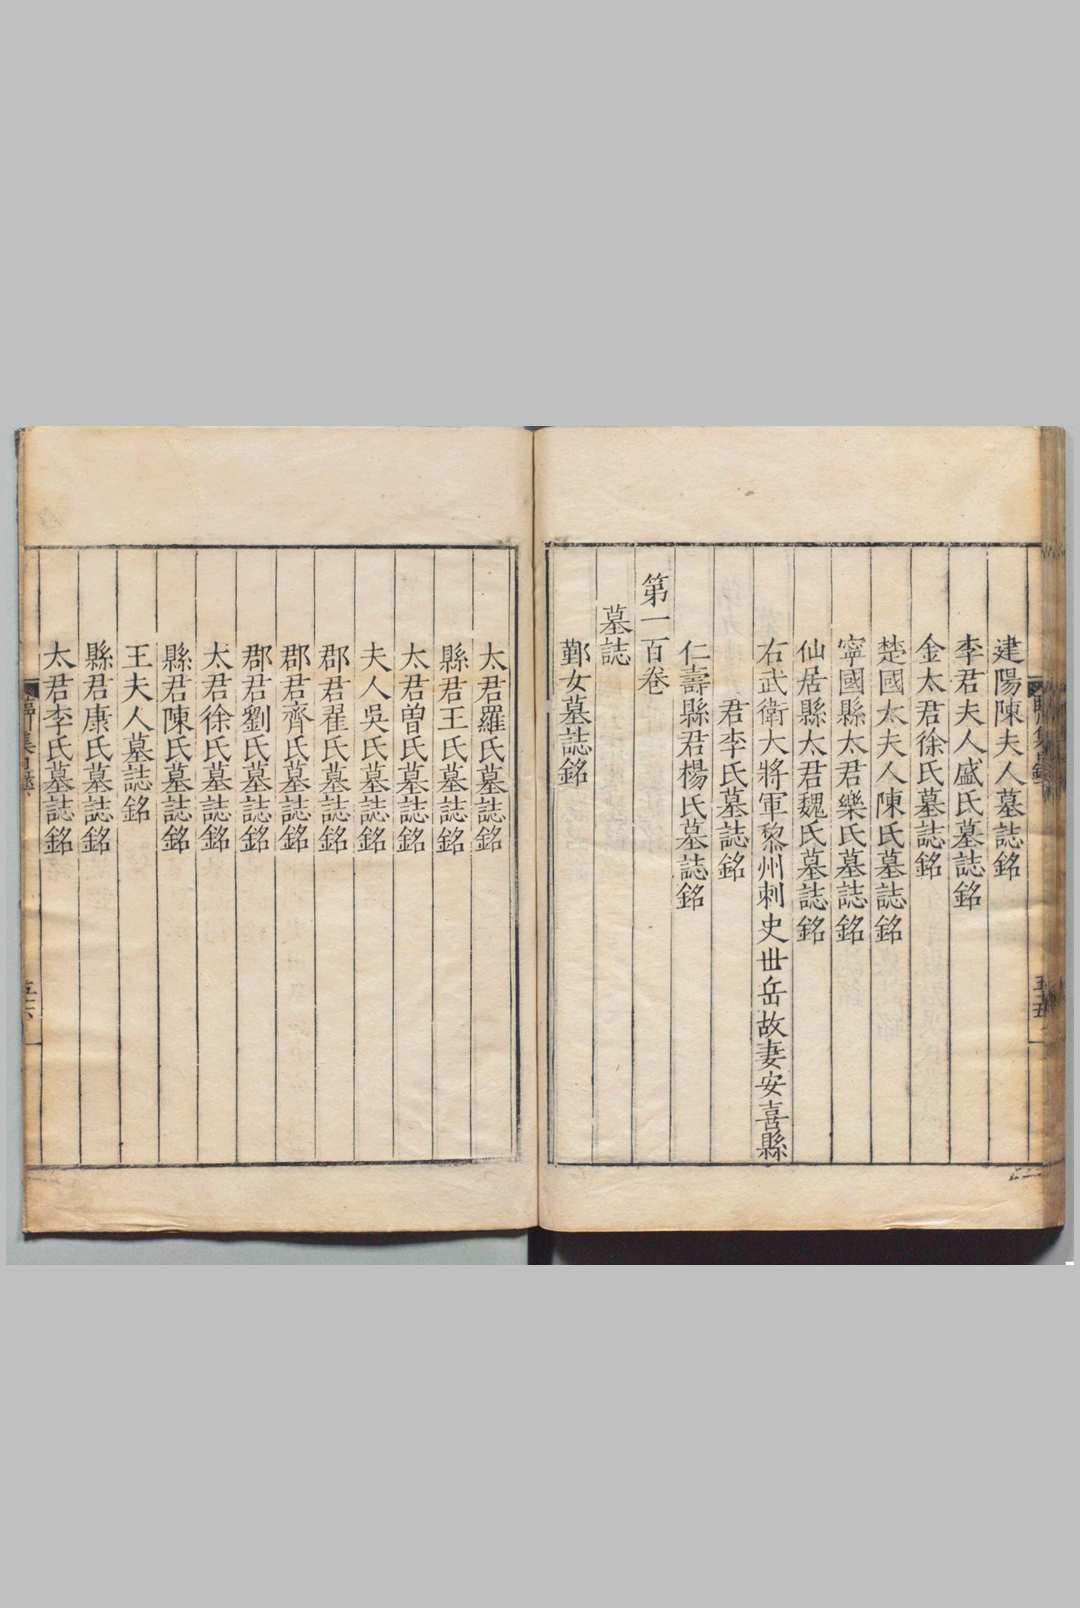 建陽陳夫人墓誌銘
李君夫人盛氏墓誌銘
金太君徐氏墓誌銘
楚國太夫人陳氏墓誌銘
寧國縣太君樂氏墓誌銘
仙居縣太君魏氏墓誌銘
右武衛大將軍黎州刺史世岳故妻安喜縣
君李氏墓誌銘
仁壽縣君楊氏墓誌銘
第一百卷
墓誌
鄞女墓誌銘
太君羅氏墓誌銘
縣君王氏墓誌銘
太君曽氏墓誌銘
夫人吳氏墓誌銘
郡君翟氏墓誌銘
郡君齊氏墓誌銘
郡君劉氏墓誌銘
太君徐氏墓誌銘
縣君陳氏墓誌銘
王夫人墓誌銘
縣君康氏墓誌銘
太君李氏墓誌銘